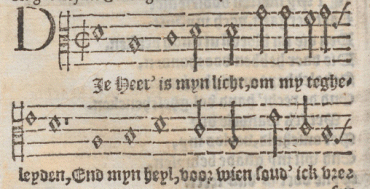 D
Je Heer' is myn licht, om my teghe-
leyden, End myn heyl, voor wien soud' ick vree-